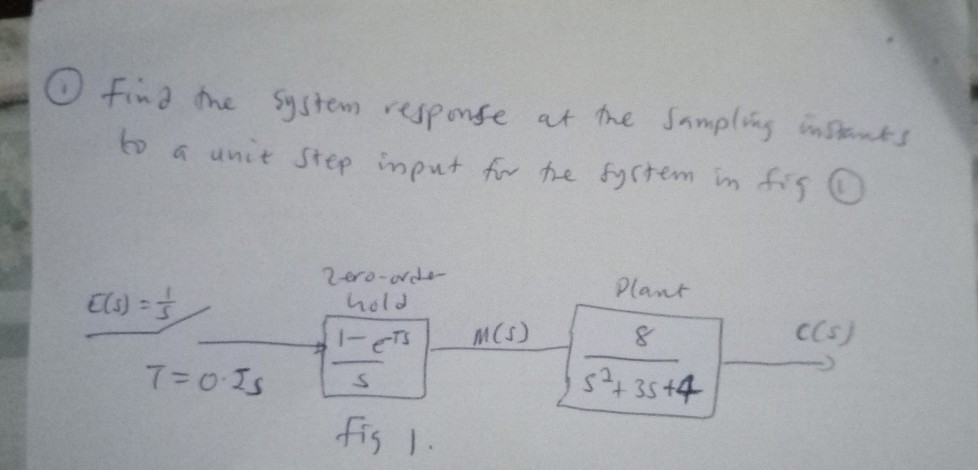 ① Find the system response at the sampling instants
to a unit step input for the system in fig ①
Zero-order
hold
Plant
E(s) = 1/s
1 - e^-TS / s
M(s)
8 / s² + 3s + 4
C(s)
T = 0.
fig 1.